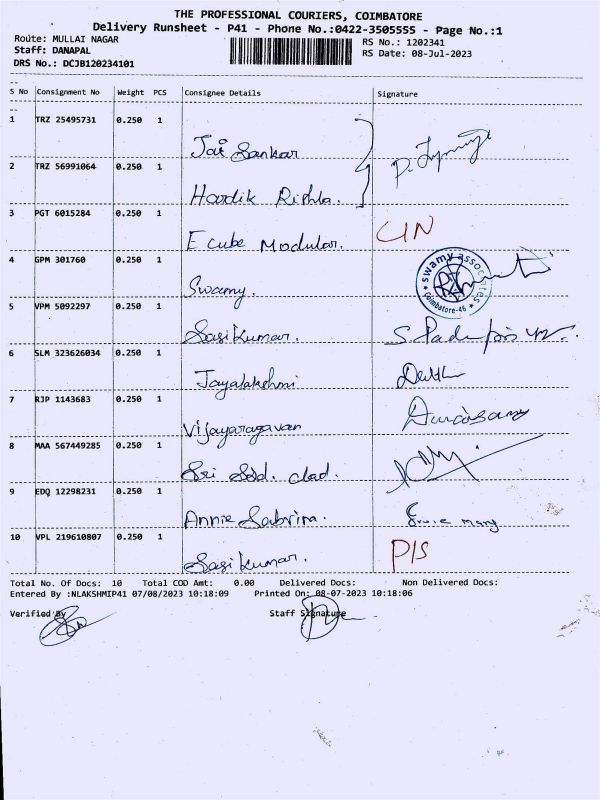 THE PROFESSIONAL COURIERS, COIMBATORE
Delivery Runsheet - P41 - Phone No.:0422-3505555 - Page No.:1
Route: MULLAI NAGAR RS No.: 1202341
Staff: DANAPAL RS Date: 08-Jul-2023
DRS No.: DCJB120234101
S No Consignment No Weight PCS Consignee Details Signature
1 TRZ 25495731 0.250 1
Jai Sankar
2 TRZ 56991064 0.250 1
Hardik Rishla.
3 PGT 6015284 0.250 1
E cube Modular. C/N
4 GPM 301760 0.250 1
Swamy. swamy associates Coimbatore-46
5 VPM 5092297 0.250 1
Sasikumar.
6 SLM 323626034 0.250 1
Jayalakshmi
7 RJP 1143683 0.250 1
Vijayaragavan
8 MAA 567449285 0.250 1
Sri clad.
9 EDQ 12298231 0.250 1
Annie Sabrina. mary
10 VPL 219610807 0.250 1
Sasikumar. P/S
Total No. Of Docs: 10 Total COD Amt: 0.00 Delivered Docs: Non Delivered Docs:
Entered By :NLAKSHMIP41 07/08/2023 10:18:09 Printed On: 08-07-2023 10:18:06
Verified By Staff Signature